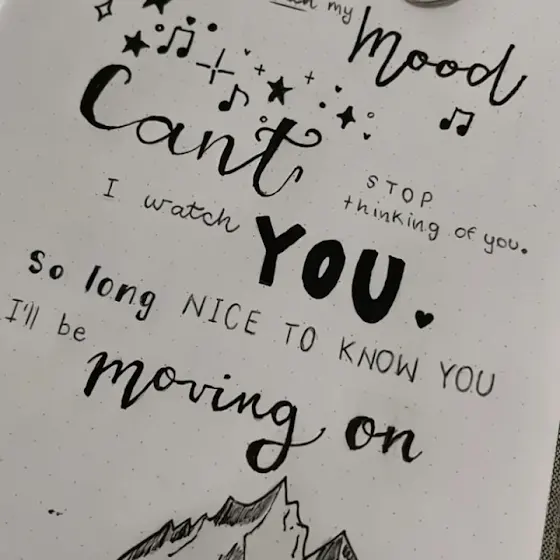 my
mood
Can't
STOP
thinking of you.
I watch
YOU.
So long NICE TO KNOW YOU
I'll be
moving on